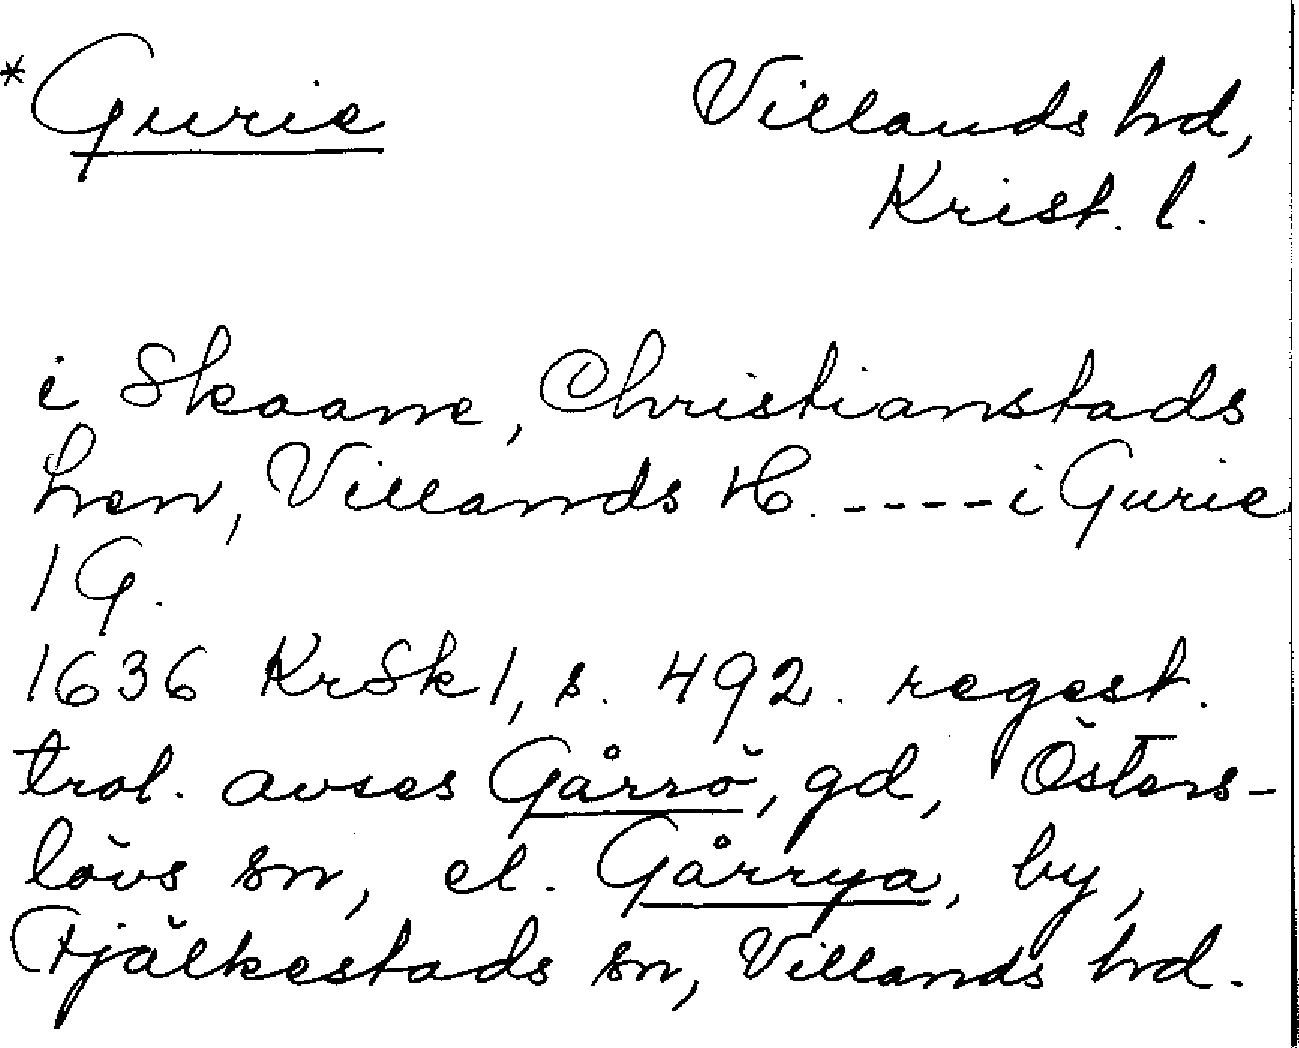 * Gurie
Villands hd,
Krist. l.
i Skaane, Christianstads
Len, Villands H. ---- i Gurie
1 G.
1636 KrSk 1, s. 492. regest.
trol. avses Gårrö, gd, Östers-
lövs sn, el. Gårrya, by,
Fjälkestads sn, Villands hd.